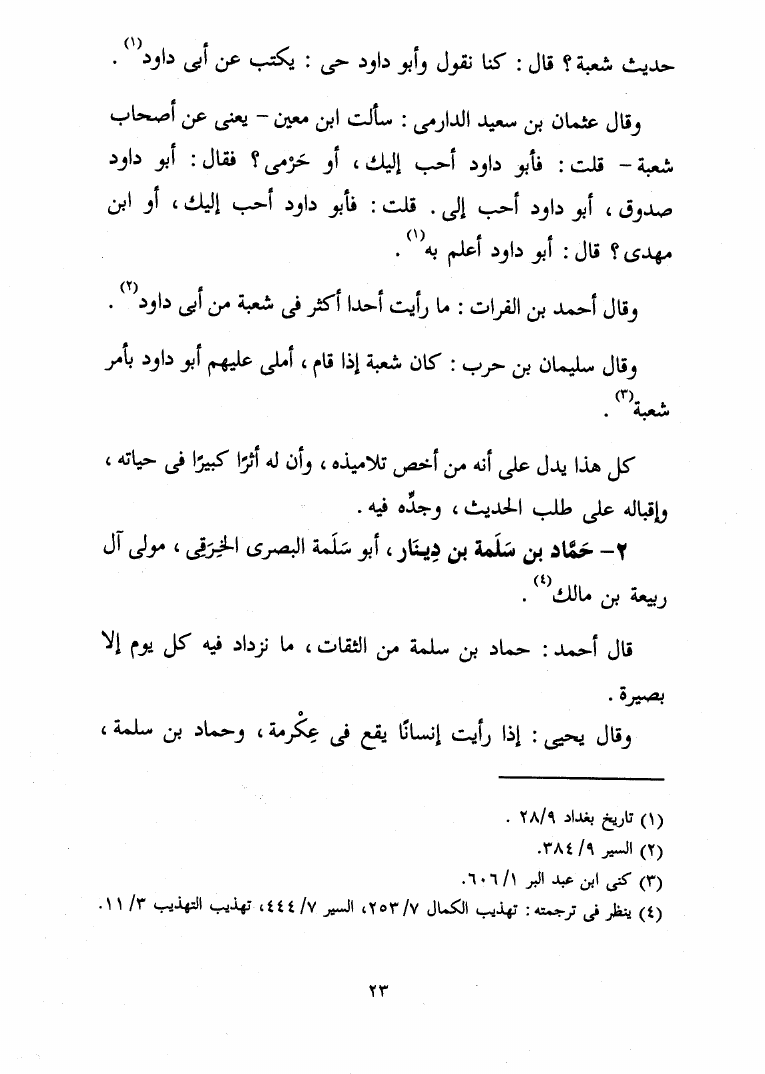 حديث شعبة ؟ قال : كنا نقول وأبو داود حى : يكتب عن أبى داود(١) .
وقال عثمان بن سعيد الدارمى : سألت ابن معين – يعنى عن أصحاب
شعبة – قلت : فأبو داود أحب إليك ، أو حَرْمى ؟ فقال : أبو داود
صدوق ، أبو داود أحب إلى . قلت : فأبو داود أحب إليك ، أو ابن
مهدى ؟ قال : أبو داود أعلم به(١) .
وقال أحمد بن الفرات : ما رأيت أحدا أكثر فى شعبة من أبى داود(٢) .
وقال سليمان بن حرب : كان شعبة إذا قام ، أملى عليهم أبو داود بأمر
شعبة(٣) .
كل هذا يدل على أنه من أخص تلاميذه ، وأن له أثرًا كبيرًا فى حياته ،
وإقباله على طلب الحديث ، وجدِّه فيه .
٢– حَمَّاد بن سَلَمة بن دِينَار ، أبو سَلَمة البصرى الخِرَقِى ، مولى آل
ربيعة بن مالك(٤) .
قال أحمد : حماد بن سلمة من الثقات ، ما نزداد فيه كل يوم إلا
بصيرة .
وقال يحيى : إذا رأيت إنسانًا يقع فى عِكْرمة ، وحماد بن سلمة ،
(١) تاريخ بغداد ٢٨/٩ .
(٢) السير ٩/ ٣٨٤.
(٣) كنى ابن عبد البر ١/ ٦٠٦.
(٤) ينظر فى ترجمته : تهذيب الكمال ٧/ ٢٥٣، السير ٧/ ٤٤٤، تهذيب التهذيب ٣/ ١١.
٢٣